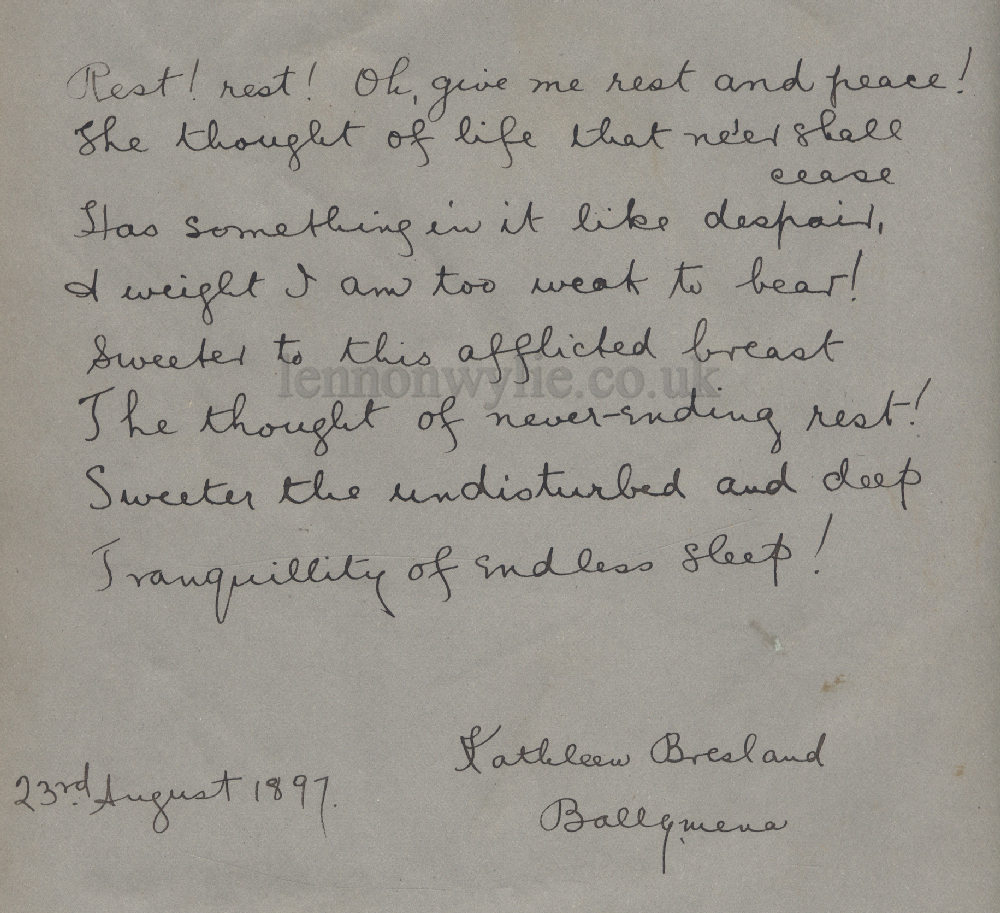 Rest! rest! Oh, give me rest and peace!
The thought of life that ne'er shall
cease
Has something in it like despair,
A weight I am too weak to bear!
Sweeter to this afflicted breast
lennonwylie.co.uk
The thought of never-ending rest!
Sweeter the undisturbed and deep
Tranquillity of endless sleep!
Kathleen Bresland
23rd. August 1897.
Ballymena